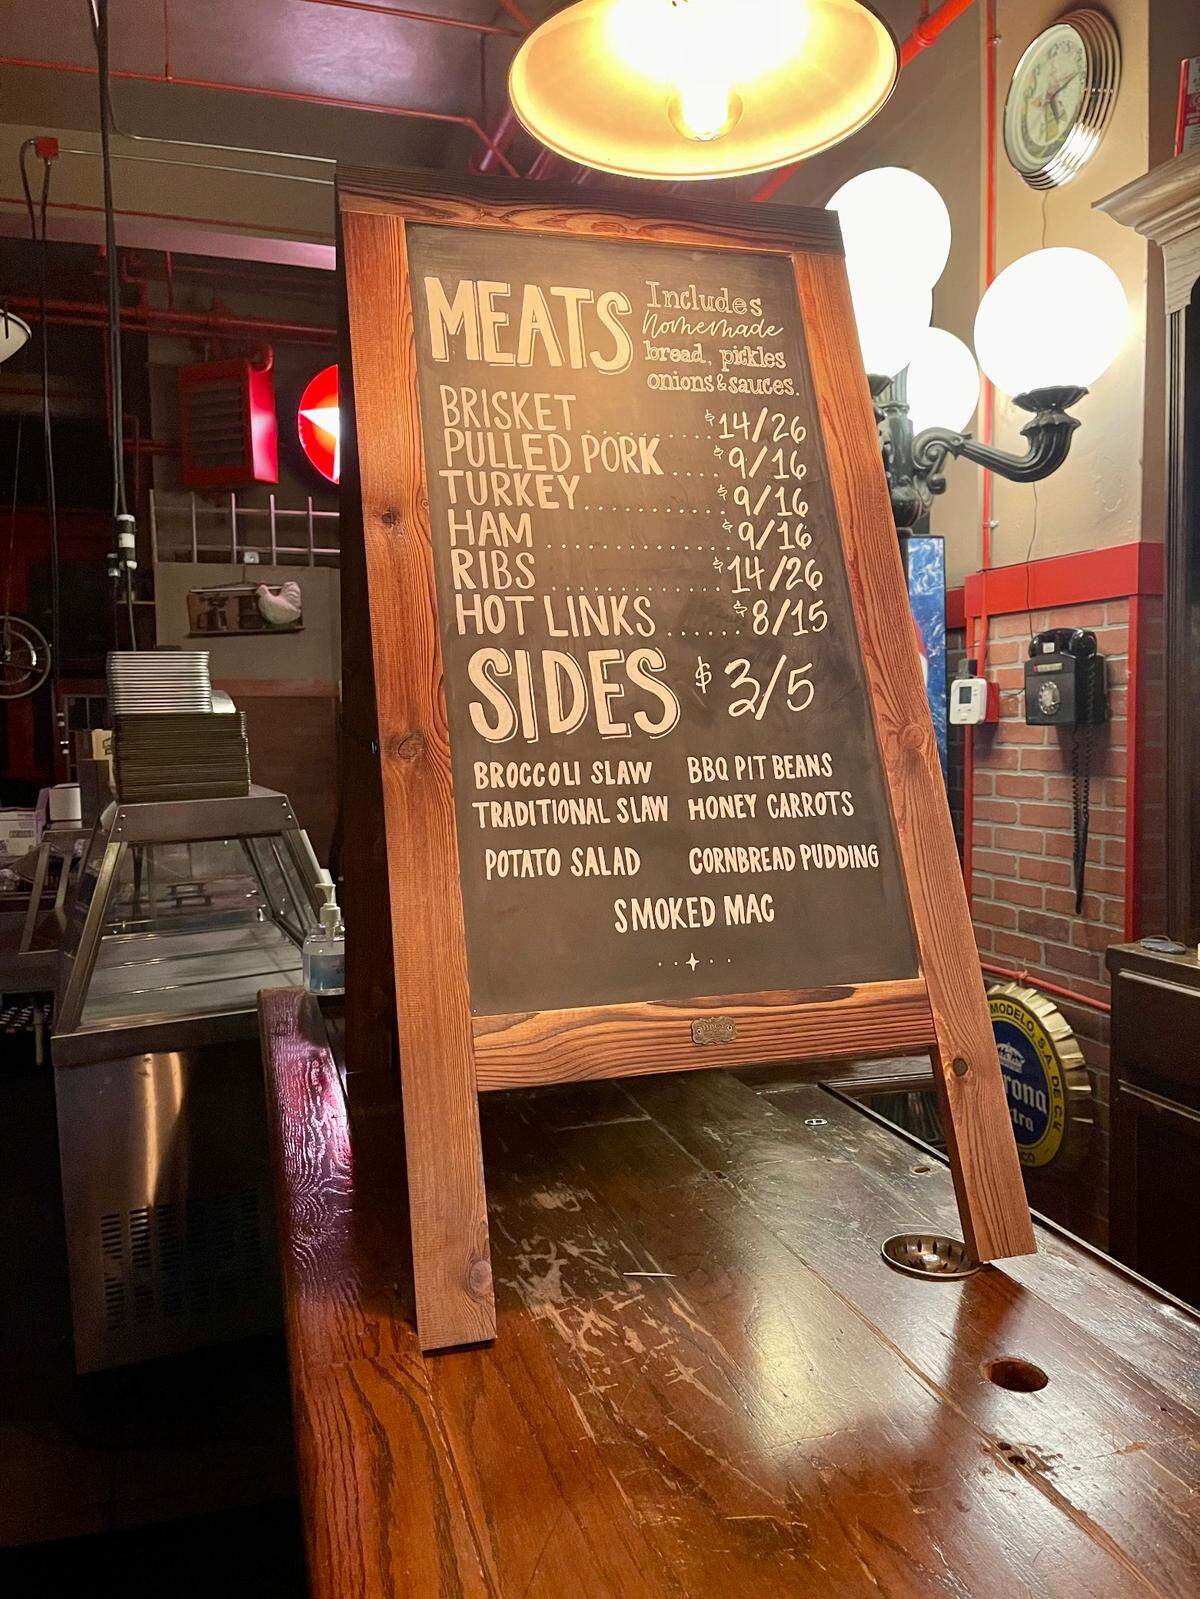 MEATS
Includes
homemade
bread, pickles
onions & sauces.
BRISKET ........ $14/26
PULLED PORK .... $9/16
TURKEY ............ $9/16
HAM ............... $9/16
RIBS ............... $14/26
HOT LINKS ...... $8/15
SIDES $3/5
BROCCOLI SLAW BBQ PIT BEANS
TRADITIONAL SLAW HONEY CARROTS
POTATO SALAD CORNBREAD PUDDING
SMOKED MAC
MODELO, S.A. DE C.V.
rona
tra